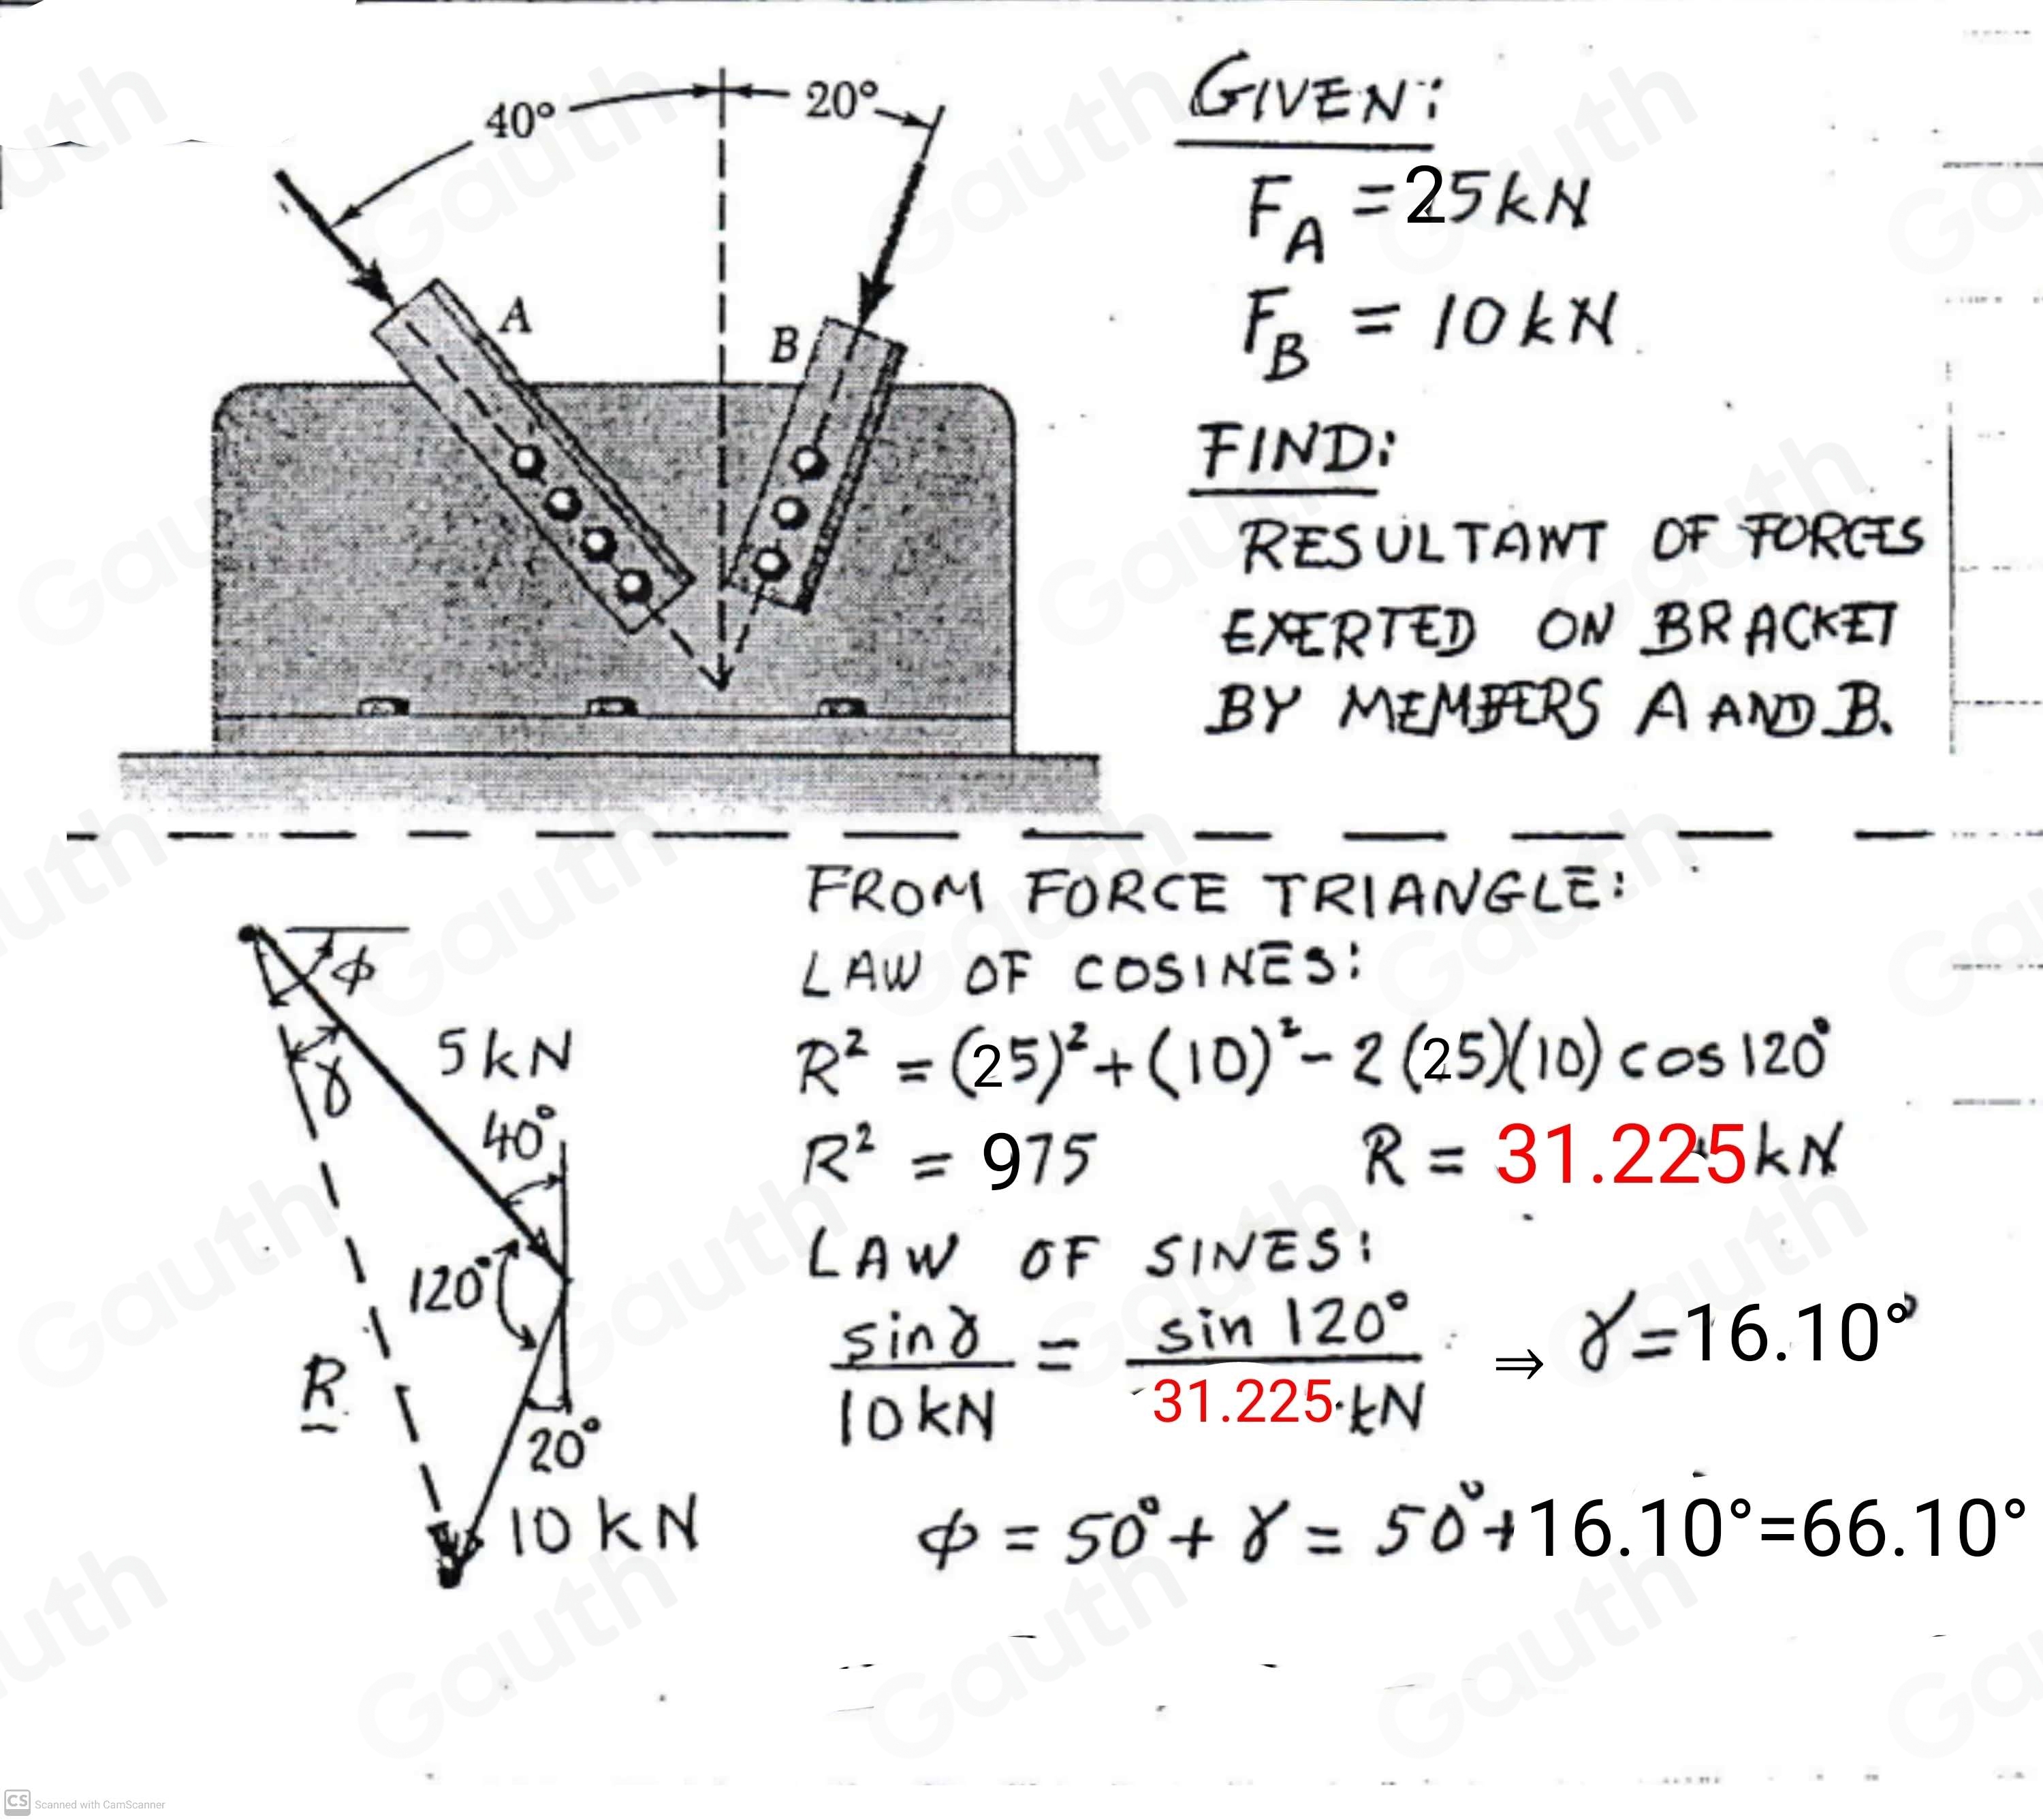 40° 20°
A
B
GIVEN:
F_A = 25kN
F_B = 10 kN
FIND:
RESULTANT OF FORCES
EXERTED ON BRACKET
BY MEMBERS A AND B.
ϕ
γ
5 kN
40°
120°
R
20°
10 kN
FROM FORCE TRIANGLE:
LAW OF COSINES:
R² = (25)² + (10)² - 2 (25)(10) cos 120°
R² = 975 R = 31.225 kN
LAW OF SINES:
sin γ / 10 kN = sin 120° / 31.225 kN ⇒ γ = 16.10°
ϕ = 50° + γ = 50° + 16.10°=66.10°
CS Scanned with CamScanner
Gauth